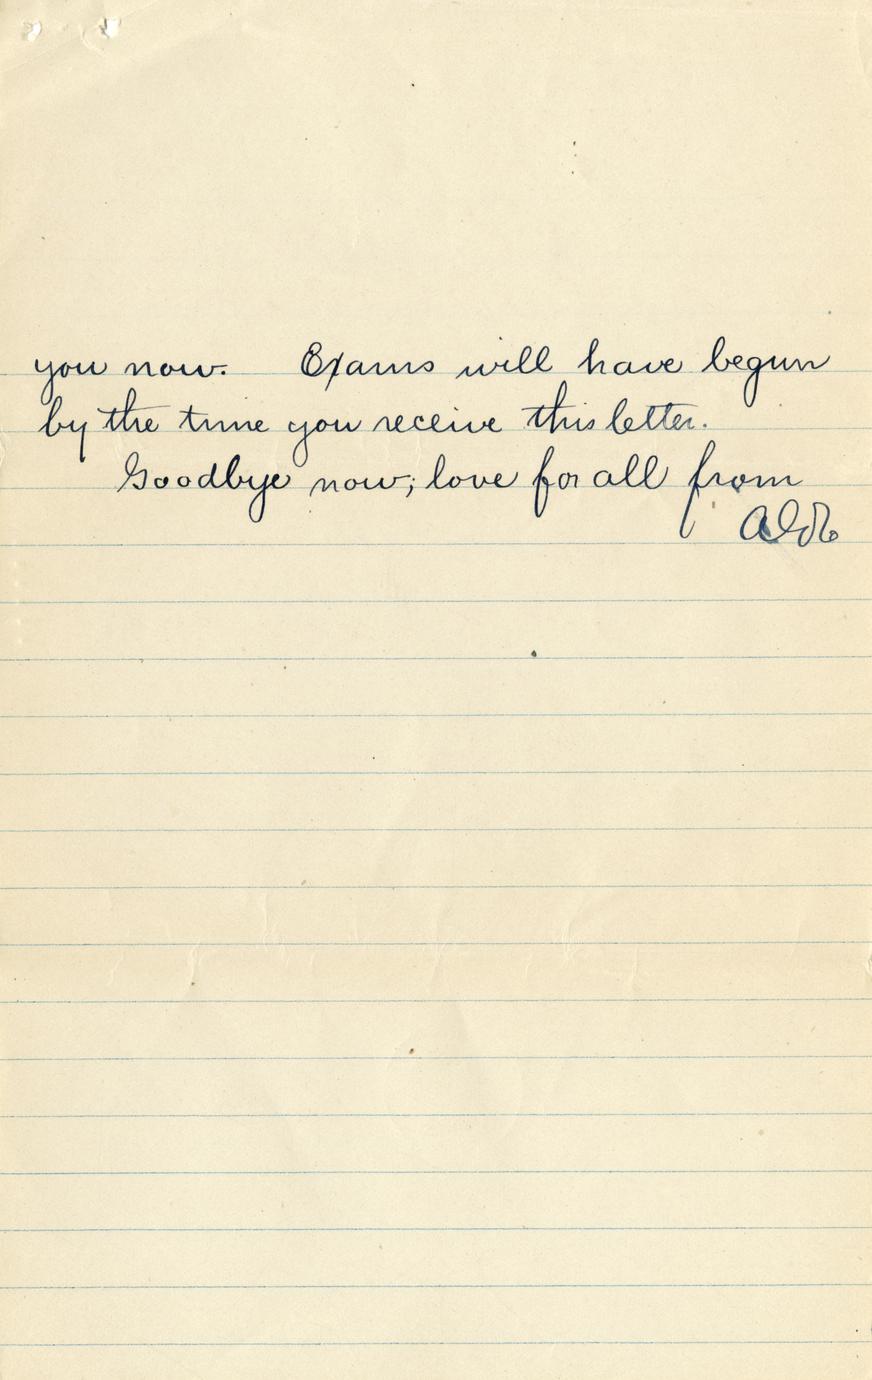 you now. Exams will have begun
by the time you receive this letter.
Goodbye now; love for all from